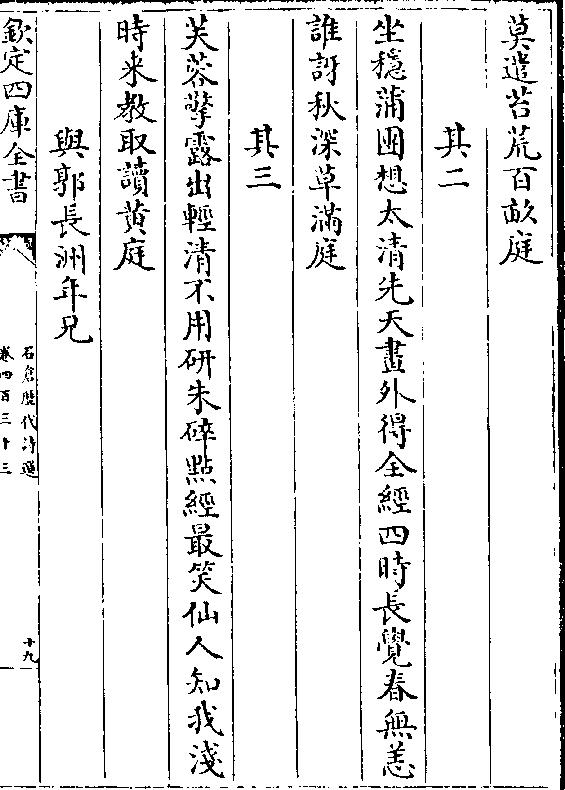 莫遣苔荒百畝庭
其二
坐穩蒲團想太清先天畫外得全經四時長覺春無恙
誰訝秋深草滿庭
其三
芙蓉擎露出輕清不用研朱碎點經最笑仙人知我淺
時来教取讀黄庭
與郭長洲年兄
欽定四庫全書
石倉歷代詩選
卷四百三十三
十九